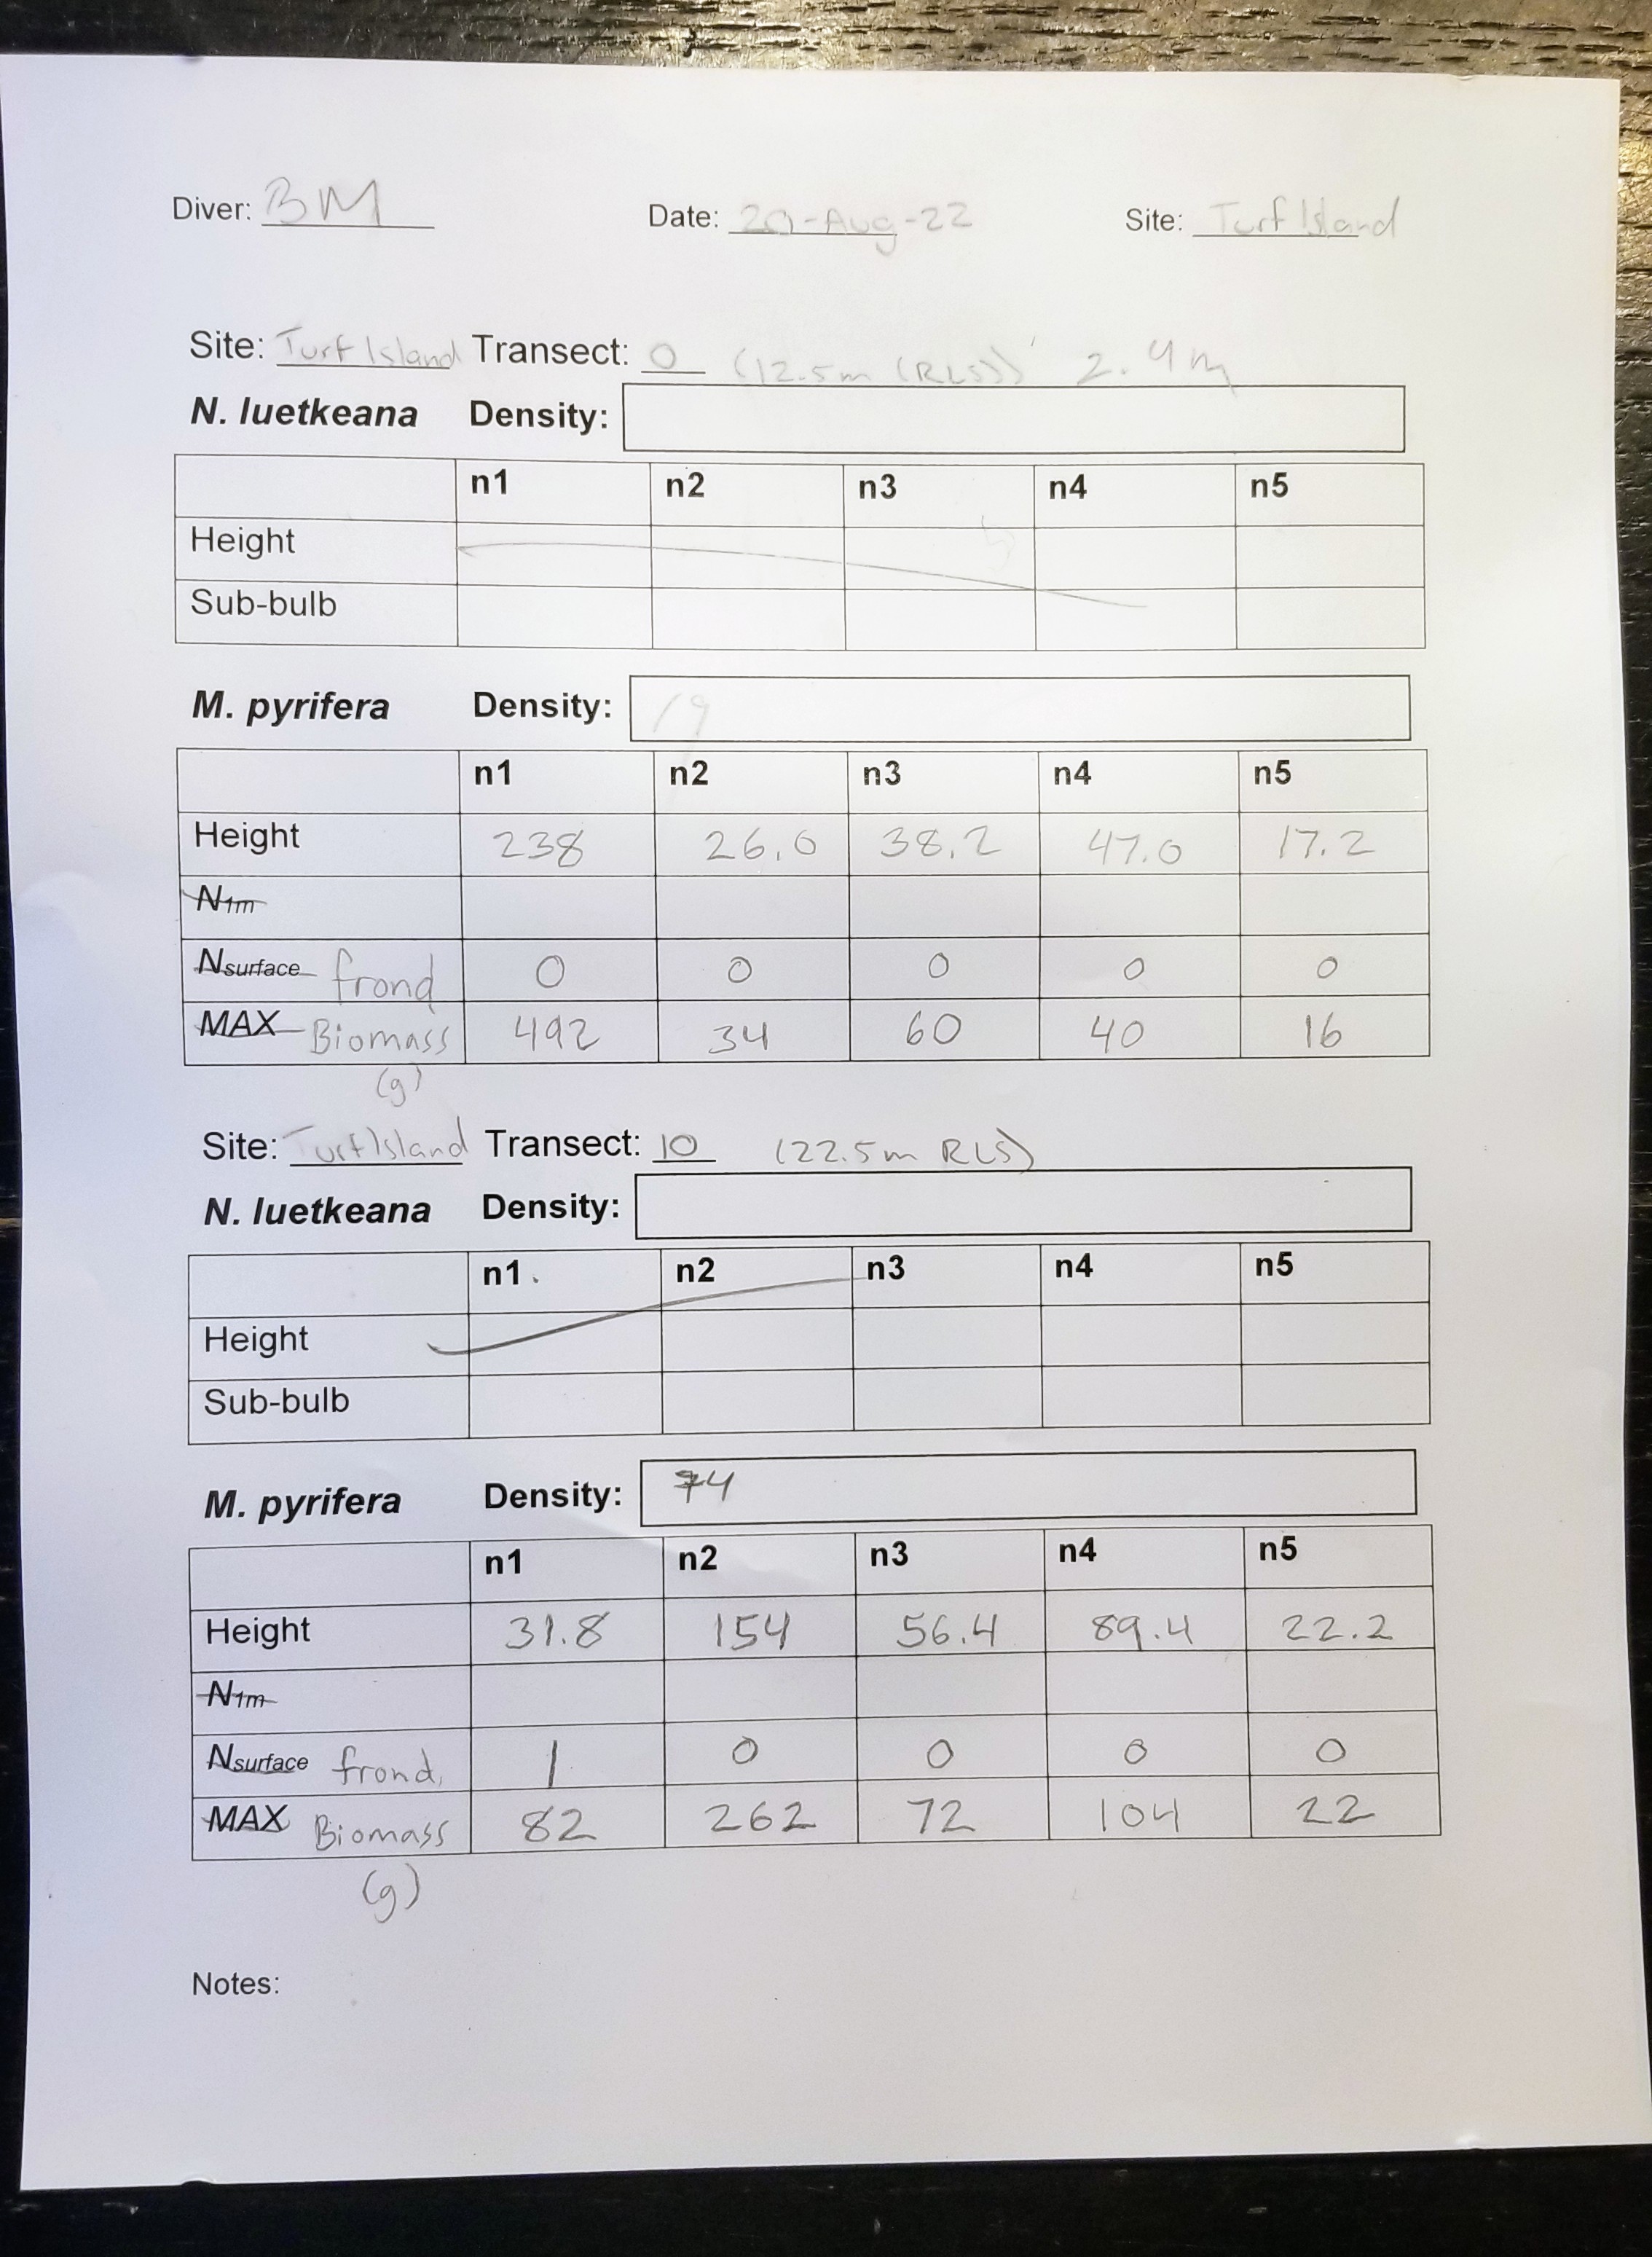 Diver: BM Date: 20-Aug-22 Site: Turf Island
Site: Turf Island Transect: 0 (12.5m (RLS)) 2.4m
N. luetkeana Density:
n1 n2 n3 n4 n5
Height
Sub-bulb
M. pyrifera Density: 19
n1 n2 n3 n4 n5
Height 238 26.0 38.2 47.0 17.2
N1m
Nsurface frond 0 0 0 0 0
MAX Biomass 492 34 60 40 16
(g)
Site: Turf Island Transect: 10 (22.5m RLS)
N. luetkeana Density:
n1 n2 n3 n4 n5
Height
Sub-bulb
M. pyrifera Density: 74
n1 n2 n3 n4 n5
Height 31.8 154 56.4 89.4 22.2
N1m
Nsurface frond 1 0 0 0 0
MAX Biomass 82 262 72 104 22
(g)
Notes: